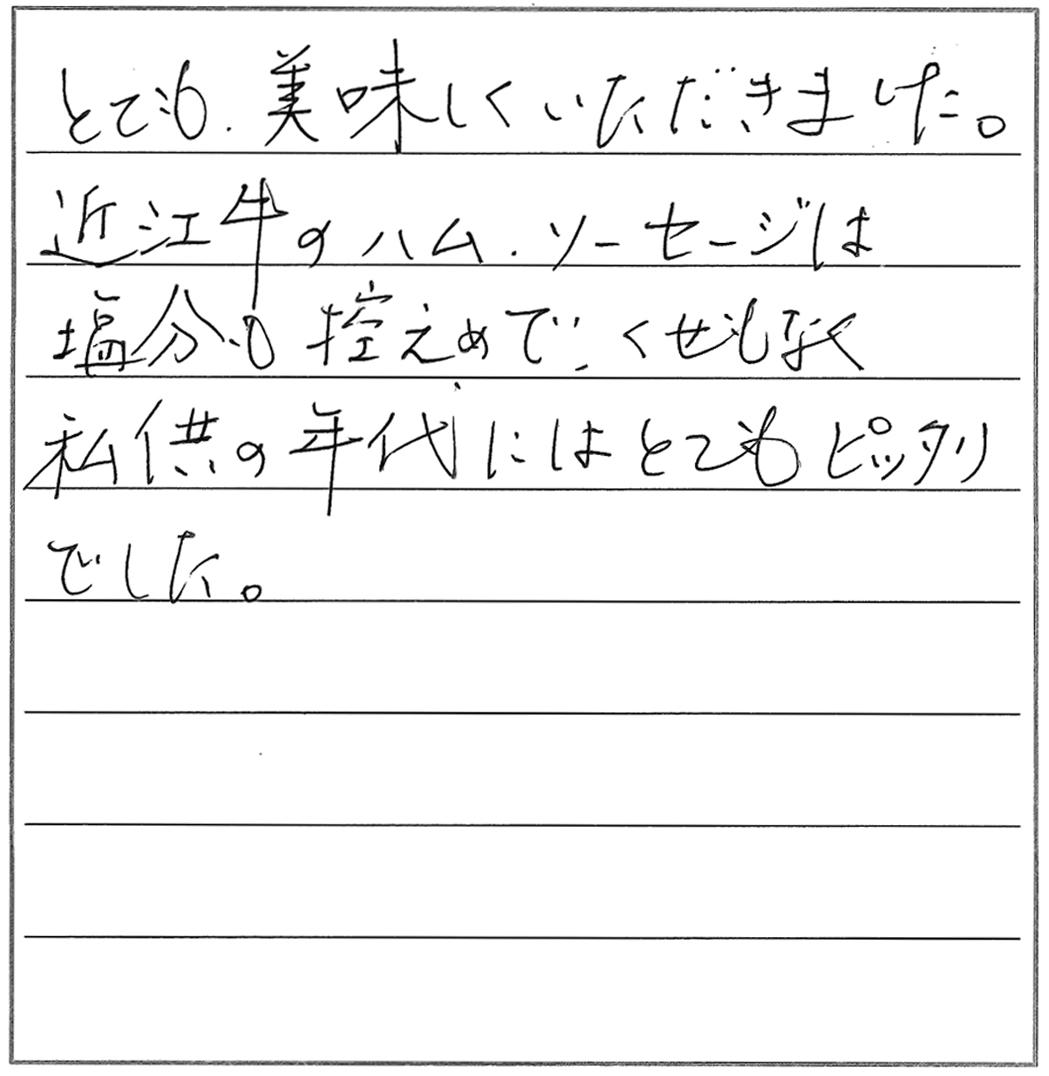 とても、美味しくいただきました。
近江牛のハム、ソーセージは
塩分も控えめで、くせもなく
私供の年代にはとてもピッタリ
でした。